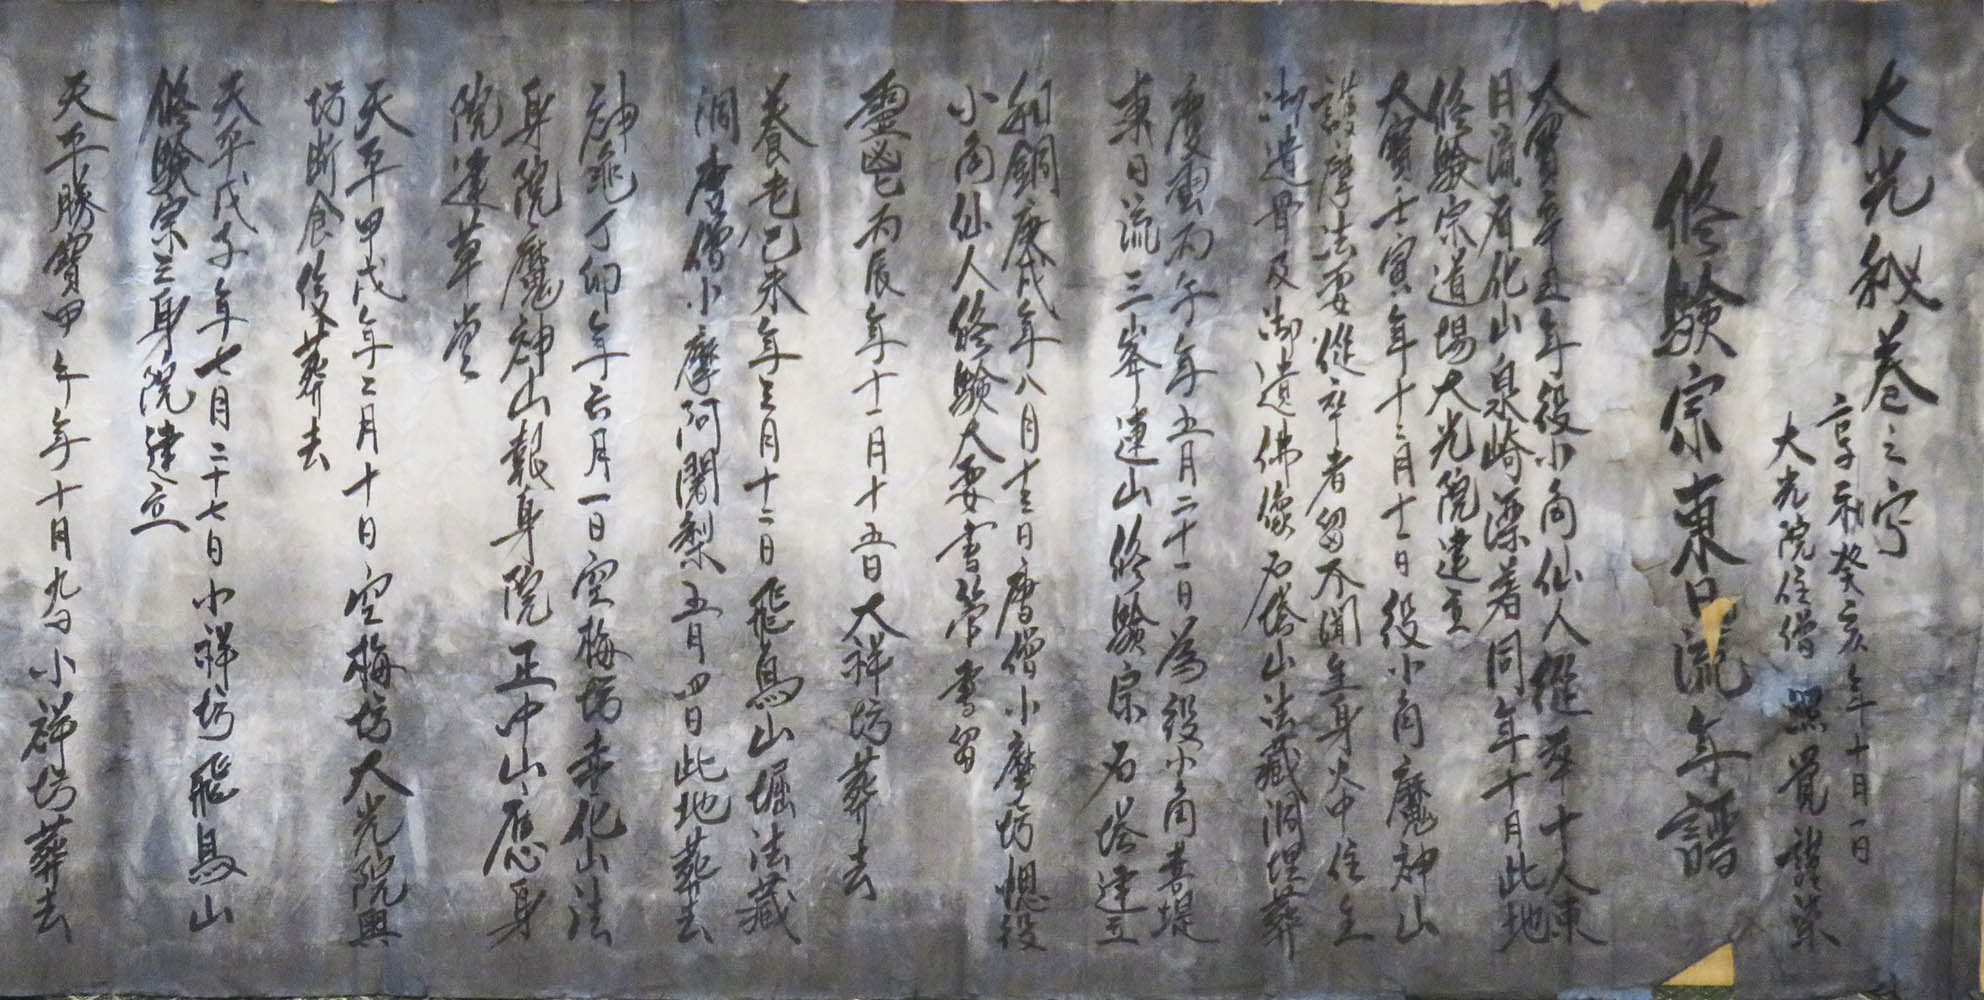 大光秘巻之宁
享和癸亥年十月一日
大光院住僧　照覺謹築
修驗宗東日流年譜
大寶辛丑年役小角仙人從卒十人東
日流有化山泉崎漂着同年十月此地
修驗宗道場大光院建立
大寶壬寅年十二月十一日役小角魔神山
護摩法要從卒者留不聞生身火中住生
御遺骨及御遺佛像石塔山法藏洞埋葬
慶雲丙午年五月二十一日為役小角菩提
東日流三峯連山修驗宗石塔建立
和銅庚戌年八月十三日唐僧小摩坊想役
小角仙人修驗大要書筆書留
靈龜丙辰年十一月十五日大祥坊葬去
養老己未年三月十二日飛鳥山堀法藏
洞唐僧小摩阿闍梨五月四日此地葬去
神龜丁卯年六月一日空梅坊赤化山法
身院魔神山報身院正中山應身
院建草堂
天平甲戌年二月十日空梅坊大光院與
坊断食後葬去
天平戊子年七月二十七日小祥坊飛鳥山
修驗宗三身院建立
天平勝寶甲午年十月九日小祥坊葬去